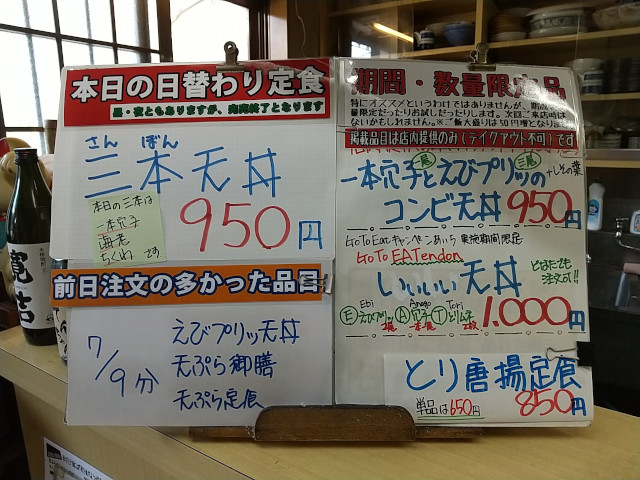 本日の日替わり定食
昼・夜ともありますが、完売終了となります
さん ぼん
三本天丼
本日の三本は
一本穴子
海老
ちくわ です
950円
前日注文の多かった品目
7/9分
えびプリッ天丼
天ぷら御膳
天ぷら定食
期間・数量限定品
特にオススメというわけではありませんが、期間
量限定だったりお試しだったりします。次回ご来店時は
ないかもしれません。※ご飯大盛りは50円増となります
掲載品目は店内提供のみ(テイクアウト不可)です
一本穴子と えびプリッの
+しその葉
コンビ天丼 950円
Go To Eat キャンペーンあいち 実施期間限定
Go To EATendon
いいいい天丼
どなたでも
注文可!!
Ebi Anago Tori
Ⓔえびプリッ2尾 Ⓐ穴子一本 Ⓣとりムネ2枚
1.000円
とり唐揚定食
単品は650円
850円
寛吉